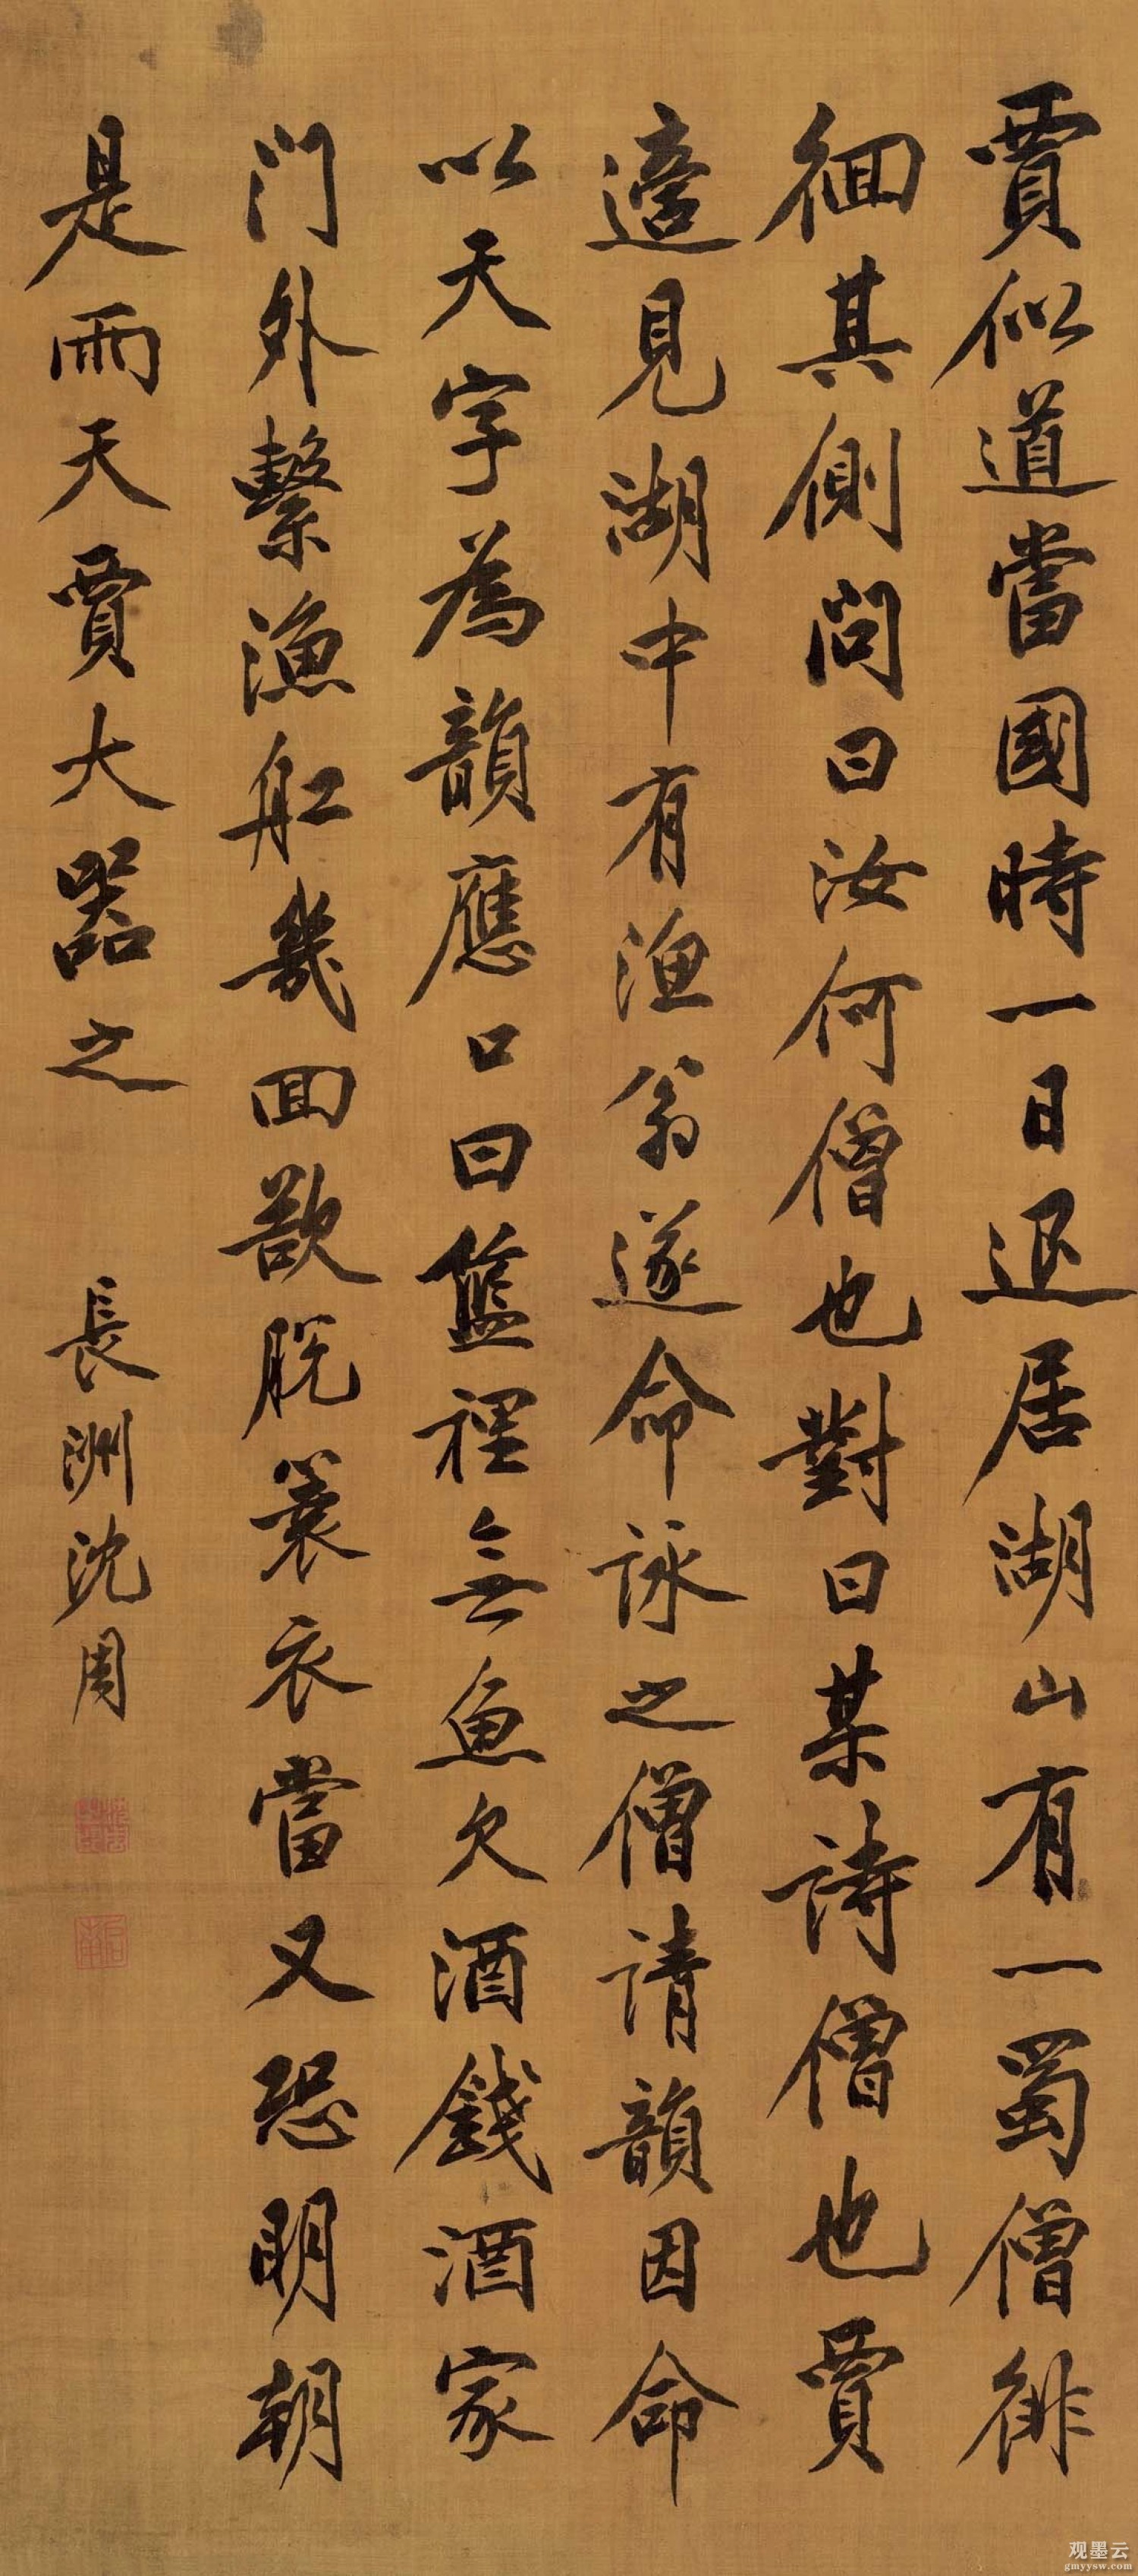 賈似道當國時一日退居湖山有一蜀僧徘
徊其側問曰汝何僧也對曰某詩僧也賈
適見湖中有漁翁遂命詠之僧請韻因命
以天字為韻應口曰籃裡無魚欠酒錢酒家
門外繫漁船幾回欲脫蓑衣當又恐明朝
是雨天賈大器之
長洲沈周
观墨云
gmyysw.com